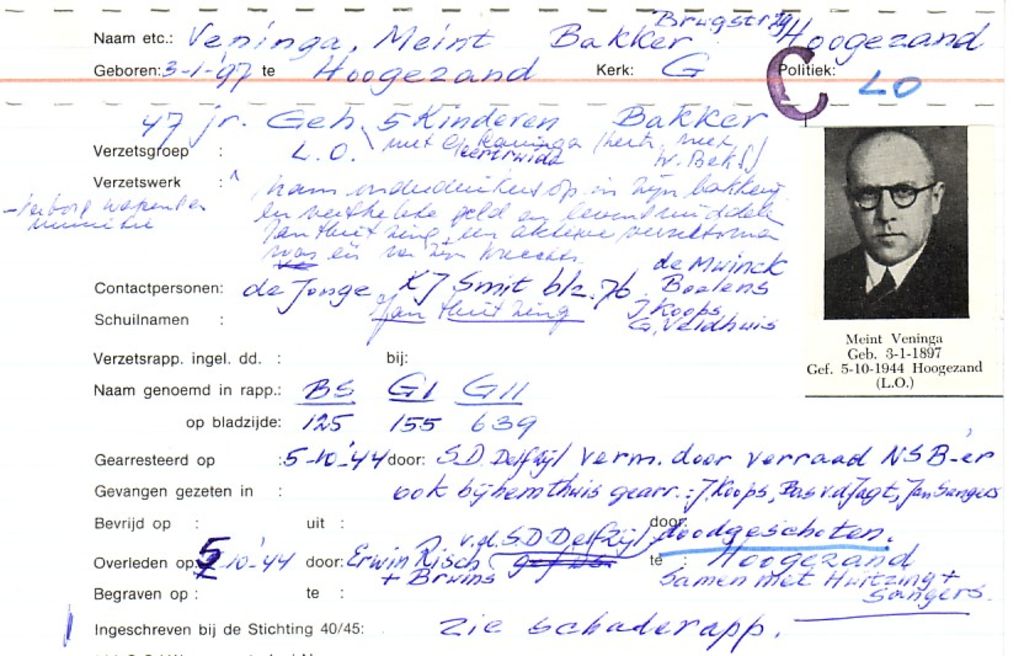 Brugstr 29
Naam etc.: Veninga, Meint Bakker Hoogezand
Geboren: 3-1-'97 te Hoogezand Kerk: G Politiek: LO
C
47 jr. Geh. 5 Kinderen Bakker
Verzetsgroep : L.O. met
Verzetswerk : nam onderduikers op in zijn bakkerij
- verborg wapens en munitie
en verstrekte geld en levensmiddelen
Jan Huitzing een aktieve verzetsman
was één van zijn
de Mwinck
Contactpersonen: de Jonge, KJ Smit blz. 76 Boelens
Schuilnamen : Jan Huitzing J Koops
G. Veldhuis
Meint Veninga
Geb. 3-1-1897
Gef. 5-10-1944 Hoogezand
(L.O.)
Verzetsrapp. ingel. dd. : bij:
Naam genoemd in rapp.: BS GI GII
op bladzijde: 125 155 639
Gearresteerd op : 5-10-'44 door: S.D. Delfzijl verm. door verraad NSB-er
Gevangen gezeten in : ook bij hem thuis gearr.: J. Koops, Bas v.d. Jagt, Jan Sangers
Bevrijd op : uit : door:
v.d. S D Delfzijl doodgeschoten.
Overleden op: 5-10-'44 door: Erwin Risch te Hoogezand
+ Bruins samen met Huitzing +
Sangers.
Begraven op : te :
Ingeschreven bij de Stichting 40/45: zie schaderapp.